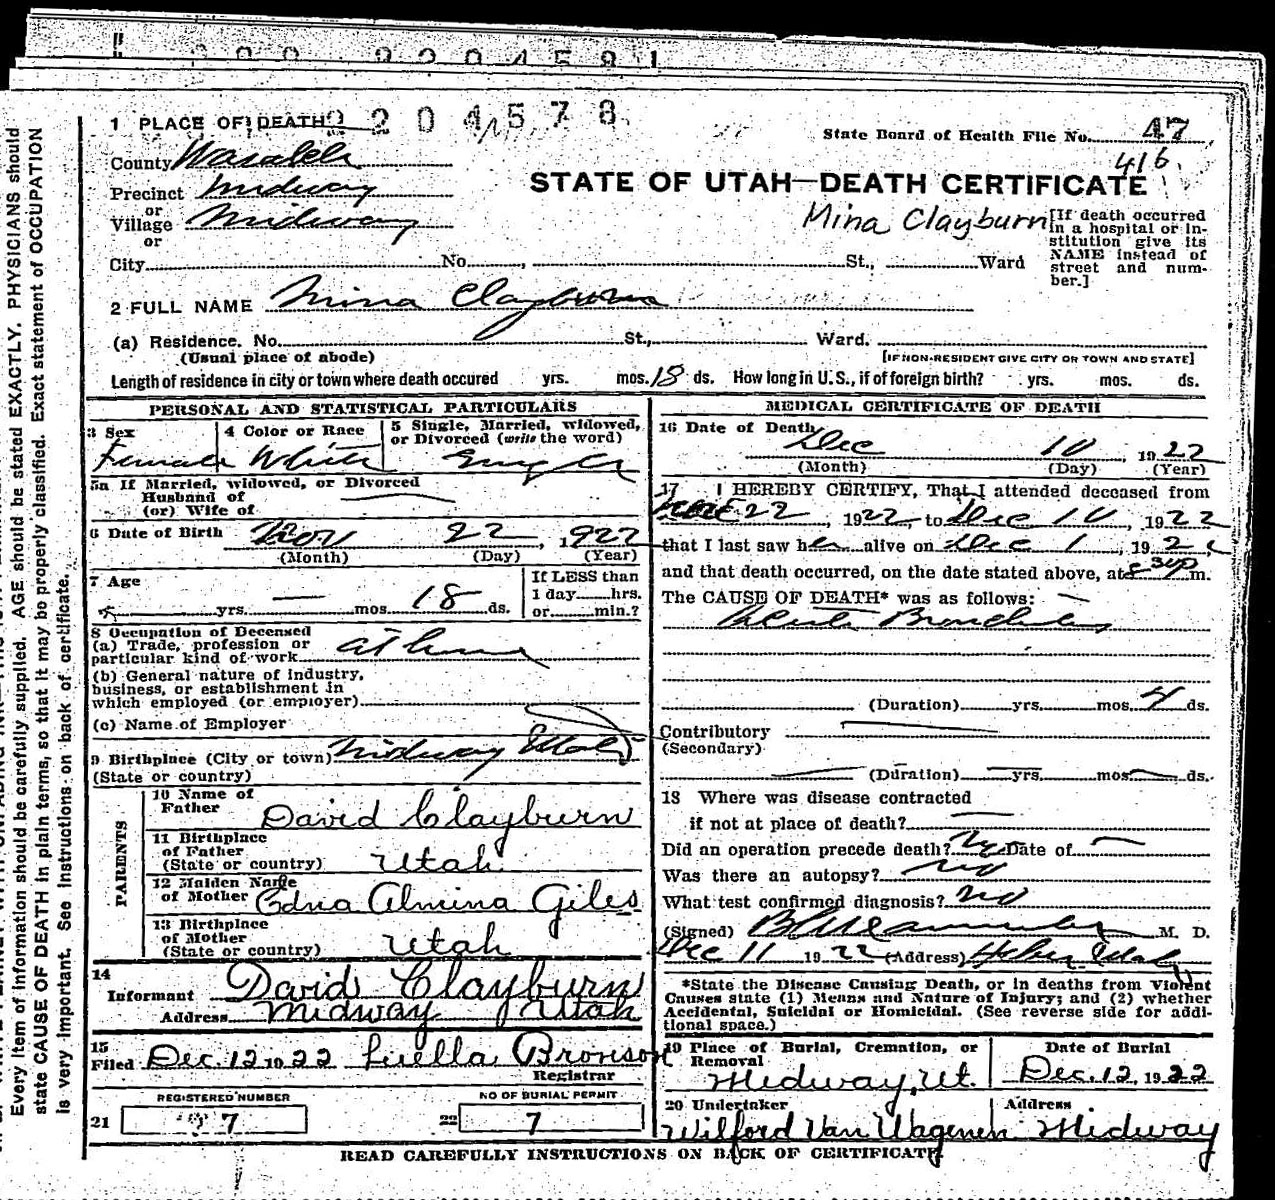 2204578
1 PLACE OF DEATH
State Board of Health File No. 47
416
County Wasatch
Precinct Midway
or
Village Midway
or
STATE OF UTAH—DEATH CERTIFICATE
Mina Clayburn
[If death occurred in a hospital or institution give its NAME instead of street and number.]
City No. , St., Ward
2 FULL NAME Mina Clayburn
(a) Residence. No. St., Ward.
(Usual place of abode) [IF NON-RESIDENT GIVE CITY OR TOWN AND STATE]
Length of residence in city or town where death occured yrs. mos. 18 ds. How long in U.S., if of foreign birth? yrs. mos. ds.
PERSONAL AND STATISTICAL PARTICULARS
3 Sex
Female
4 Color or Race
White
5 Single, Married, Widowed,
or Divorced (write the word)
Single
5a If Married, Widowed, or Divorced
Husband of
(or) Wife of
6 Date of Birth Nov 22, 1922
(Month) (Day) (Year)
7 Age
yrs. — mos. 18 ds.
If LESS than
1 day hrs.
or min.?
8 Occupation of Deceased
(a) Trade, profession or
particular kind of work at home
(b) General nature of industry,
business, or establishment in
which employed (or employer)
(c) Name of Employer
9 Birthplace (City or town) Midway Utah
(State or country)
PARENTS
10 Name of
Father David Clayburn
11 Birthplace
of Father
(State or country) Utah
12 Maiden Name
of Mother Edna Almina Giles
13 Birthplace
of Mother
(State or country) Utah
14
Informant David Clayburn
Address Midway Utah
15
Filed Dec. 12 1922 Luella Bronson
Registrar
REGISTERED NUMBER
21 7
NO OF BURIAL PERMIT
22 7
MEDICAL CERTIFICATE OF DEATH
16 Date of Death
Dec 10 1922
(Month) (Day) (Year)
17 I HEREBY CERTIFY, That I attended deceased from
22, 1922 to Dec 10, 1922
that I last saw her alive on Dec 1, 192
and that death occurred, on the date stated above, at m.
The CAUSE OF DEATH* was as follows:
Bronchitis
(Duration) yrs. mos. 4 ds.
Contributory
(Secondary)
(Duration) yrs. mos. ds.
18 Where was disease contracted
if not at place of death?
Did an operation precede death? No Date of
Was there an autopsy? no
What test confirmed diagnosis? no
(Signed) M. D.
Dec 11 1922 (Address) Heber Utah
*State the Disease Causing Death, or in deaths from Violent
Causes state (1) Means and Nature of Injury; and (2) whether
Accidental, Suicidal or Homicidal. (See reverse side for addi-
tional space.)
19 Place of Burial, Cremation, or
Removal
Midway, Ut.
Date of Burial
Dec. 12, 1922
20 Undertaker
Wilford Van Wagenen
Address
Midway
READ CAREFULLY INSTRUCTIONS ON BACK OF CERTIFICATE
Every item of information should be carefully supplied. AGE should be stated EXACTLY. PHYSICIANS should
state CAUSE OF DEATH in plain terms, so that it may be properly classified. Exact statement of OCCUPATION
is very important. See instructions on back of certificate.